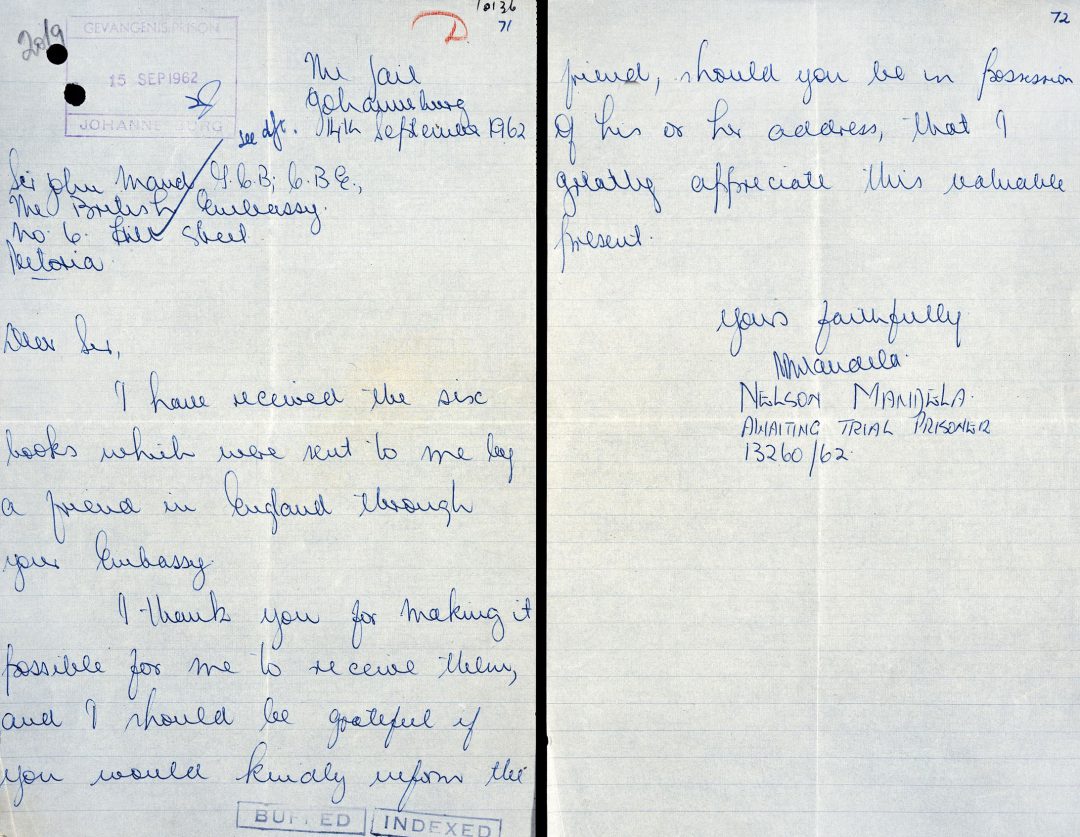 2019
GEVANGENIS PRISON
15 SEP 1962
JOHANNESBURG
10136
71
The Jail
Johannesburg
14th September 1962
see dft.
Sir John Maud G.C.B; C.B.E.,
The British Embassy.
No. 6. Hill Street
Pretoria.
Dear Sir,
I have received the six
books which were sent to me by
a friend in England through
your Embassy.
I thank you for making it
possible for me to receive them,
and I should be grateful if
you would kindly inform the
BUFFED INDEXED
72
friend, should you be in possession
of his or her address, that I
greatly appreciate this valuable
present.
Yours faithfully
NMandela.
NELSON MANDELA.
AWAITING TRIAL PRISONER
13260/62.